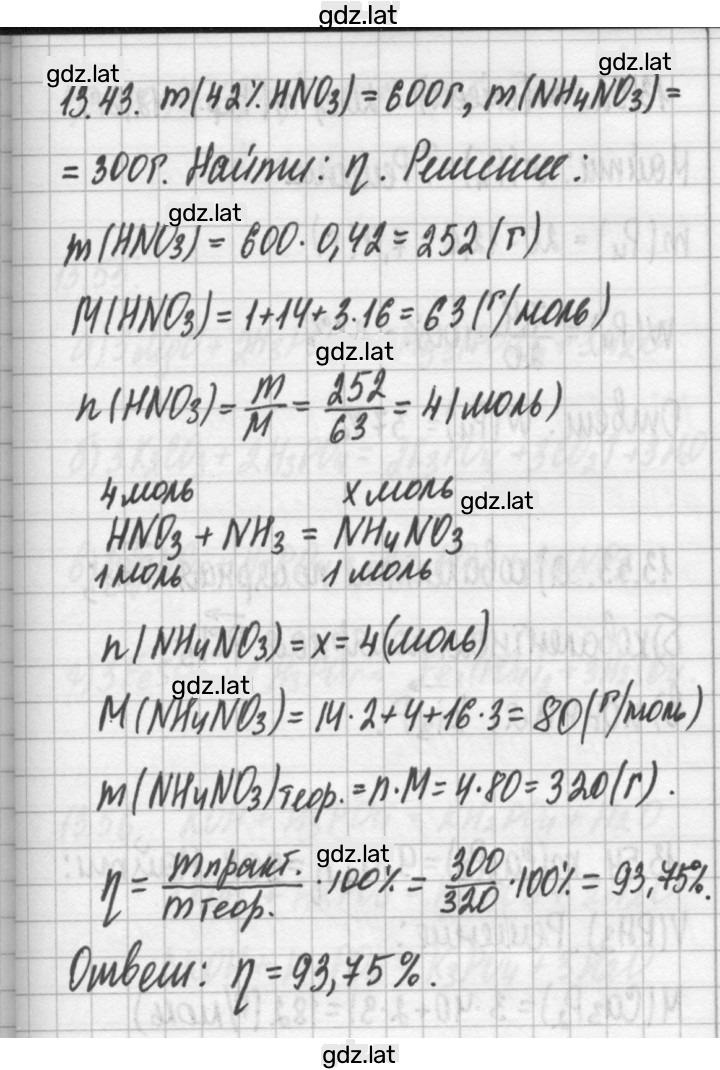 gdz.lat
gdz.lat
gdz.lat
13.43. m(42% HNO3) = 600г, m(NH4NO3) =
= 300г. Найти: η. Решение:
gdz.lat
m(HNO3) = 600·0,42 = 252(г)
M(HNO3) = 1+14+3·16 = 63(г/моль)
gdz.lat
n(HNO3) = m/M = 252/63 = 4(моль)
4 моль x моль
gdz.lat
HNO3 + NH3 = NH4NO3
1 моль 1 моль
n(NH4NO3) = x = 4(моль)
gdz.lat
M(NH4NO3) = 14·2+4+16·3 = 80(г/моль)
m(NH4NO3)теор. = n·M = 4·80 = 320(г).
gdz.lat
η = mпракт./mтеор. ·100% = 300/320 ·100% = 93,75%.
Ответ: η = 93,75%.
gdz.lat